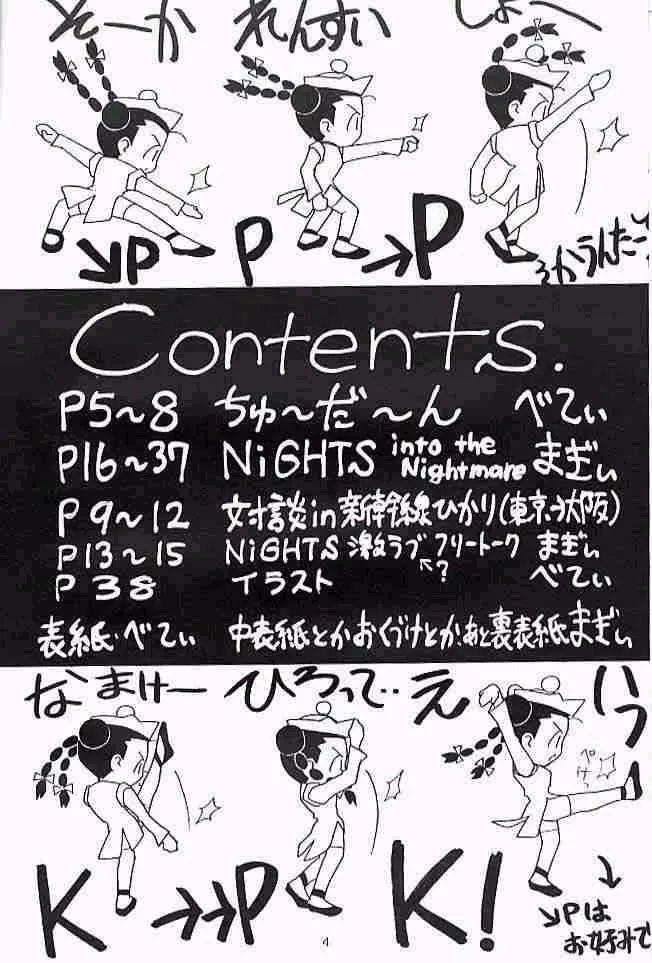 そーか れんすい しょー
↘P P →P
そかうんたーっ
Contents.
P5〜8 ちゅ〜だ〜ん べてぃ
P16〜37 NiGHTS into the Nightmare まぎぃ
P9〜12 対談in新幹線ひかり(東京→大阪)
P13〜15 NiGHTS 激ラブ フリートーク まぎぃ
←?
P38 イラスト べてぃ
表紙・べてぃ 中表紙とかおくづけとかあと裏表紙まぎぃ
なまけー ひろって‥ えいっ
ぺけっ
K →→P K!
↓
↘Pは
お好みで
4